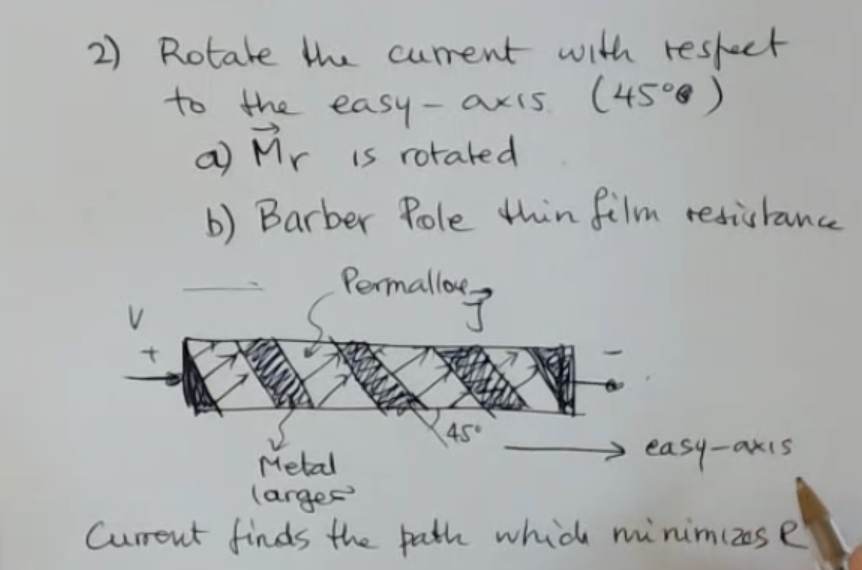 2) Rotate the current with respect
to the easy-axis. (45°)
a) M⃗r is rotated
b) Barber Pole thin film resistance
Permalloy
J⃗
V
+
-
45°
easy-axis
Metal
larges
Current finds the path which minimizes R